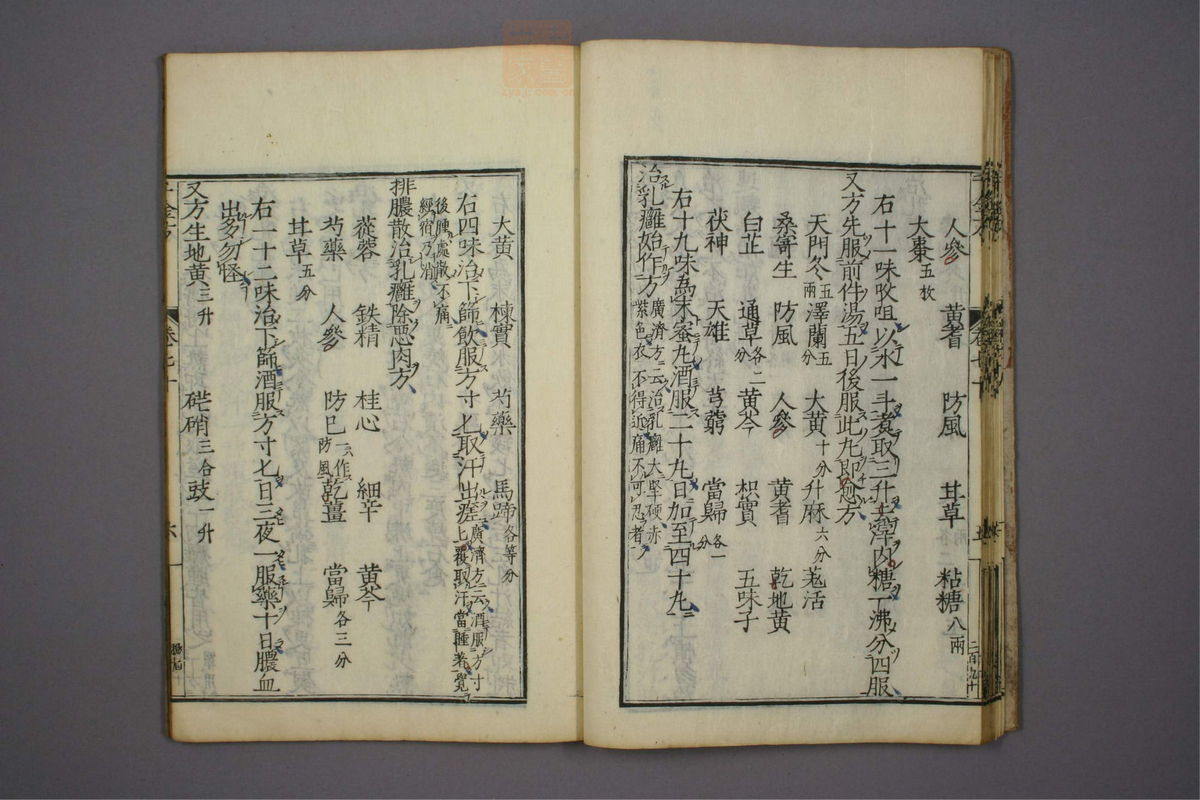 人參　黃耆　防風　甘草　粘糖八兩
大棗五枚
右十一味㕮咀以水一斗煮取三升去滓內糖一沸分四服
又方先服前件湯五日後服此丸即愈方
天門冬五兩　澤蘭五分　大黃十分　升麻六分　羌活
桑寄生　防風　人參　黃耆　乾地黃
白芷　通草各二分　黃芩　枳實　五味子
茯神　天雄　芎藭　當歸各一分
右十九味為末蜜丸酒服二十丸日加至四十丸
治乳癰始作方廣濟方云治乳癰大堅硬赤紫色衣不得近痛不可忍者
大黃　楝實　芍藥　馬蹄各等分
右四味治下篩飲服方寸匕取汗出瘥廣濟方云酒服方寸匕覆取汗當睡著覺
後腫處散不痛經宿乃消
排膿散治乳癰除惡肉方
蓯蓉　鉄精　桂心　細辛　黃芩
芍藥　人參　防已一云作防風　乾薑　當歸各三分
甘草五分
右一十二味治下篩酒服方寸匕日三夜一服藥十日膿血
出多勿怪
又方生地黃三升　硭硝三合　豉一升
千金方　卷七十　六